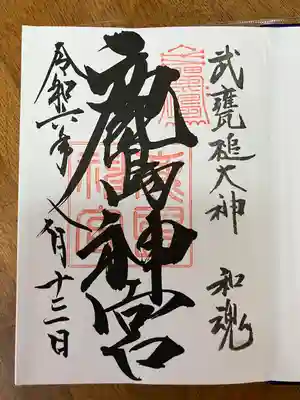 武甕槌大神　和魂
鹿島神宮
令和六年八月十二日